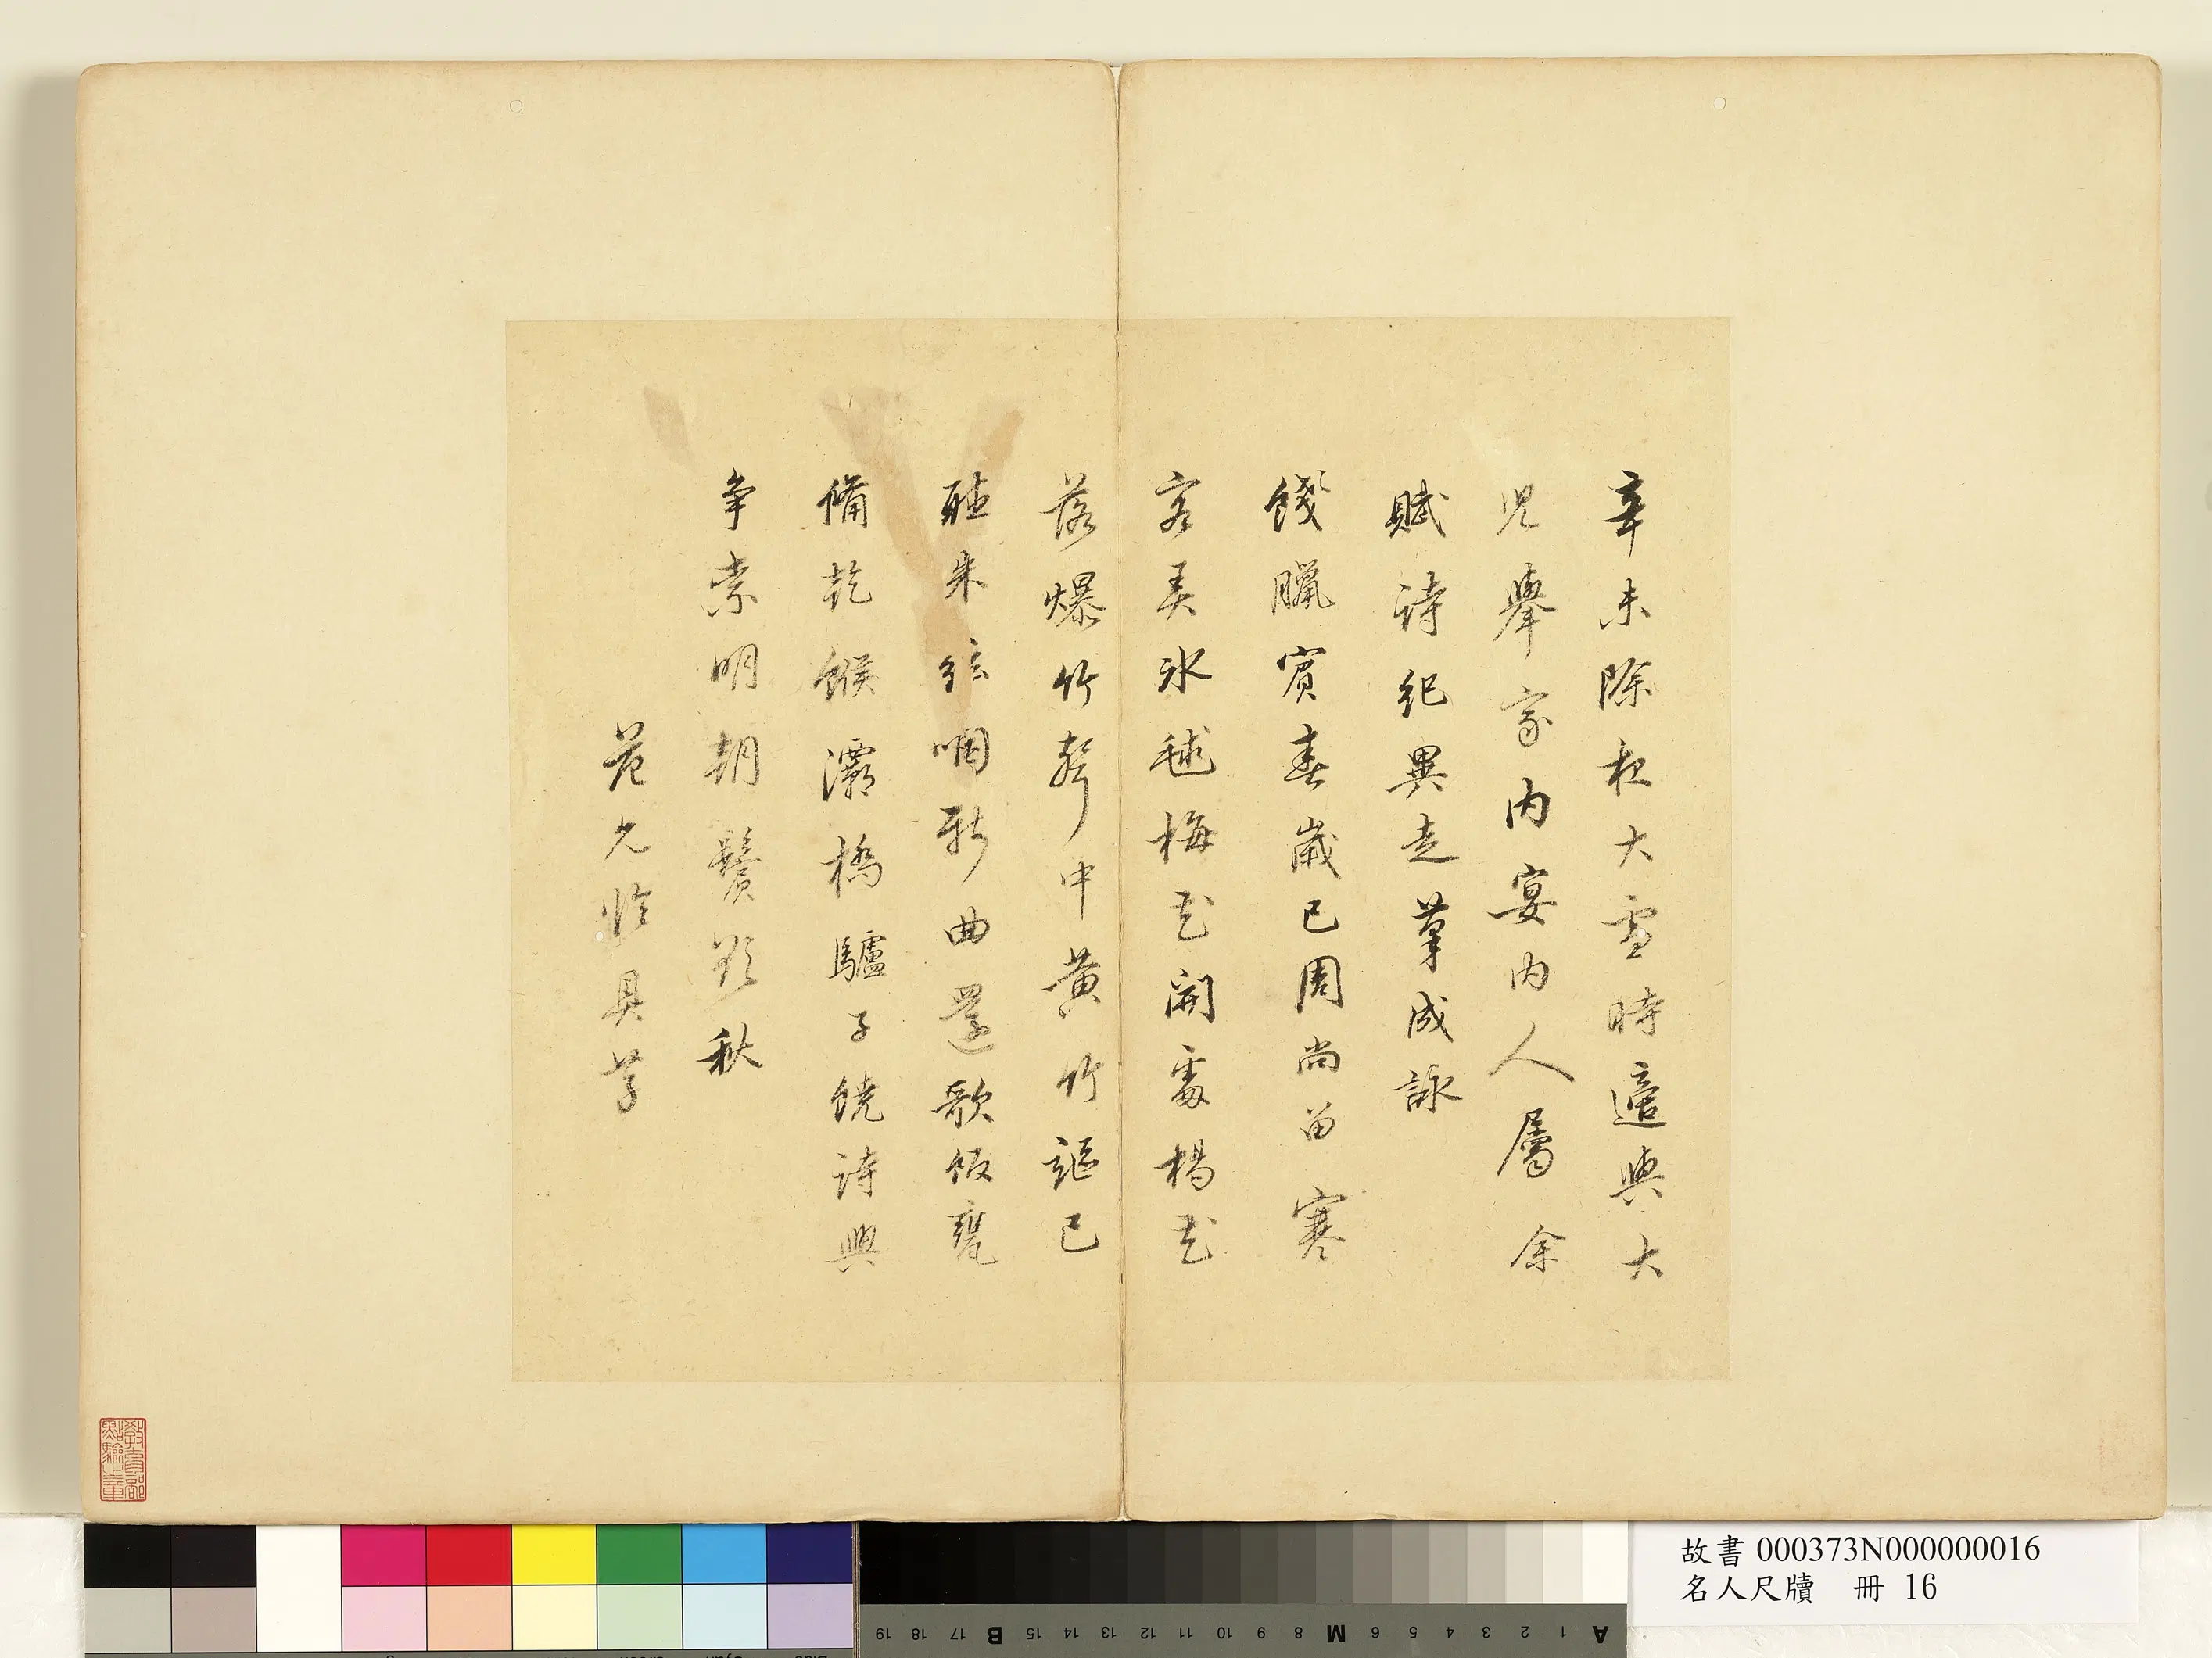 辛未除夜大雪時適與大
兒舉家内宴内人屬余
賦詩紀異走筆成詠
餞臘賓春歲已周尚留寒
客美氷毬梅花開處楊花
落爆竹聲中黄竹謳已
聽朱絃咽新曲還歌飯甕
備乾餱灞橋驢子饒詩興
爭索明朝鬢欲秋
范允臨具草
教育部
點驗之章
故書 000373N000000016
名人尺牘 冊 16
A 1 2 3 4 5 6 M 8 9 10 11 12 13 14 15 B 17 18 19